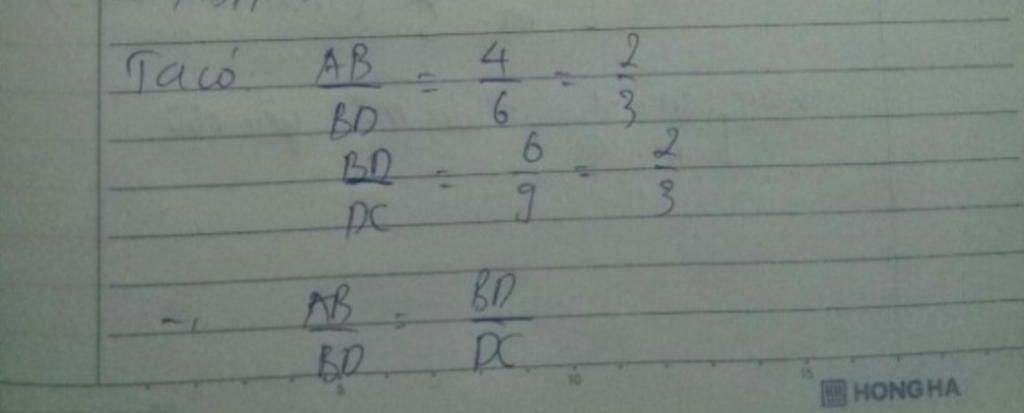 Ta có: AB/BD = 4/6 = 2/3
BD/DC = 6/9 = 2/3
→ AB/BD = BD/DC
5 10 15
HONG HA